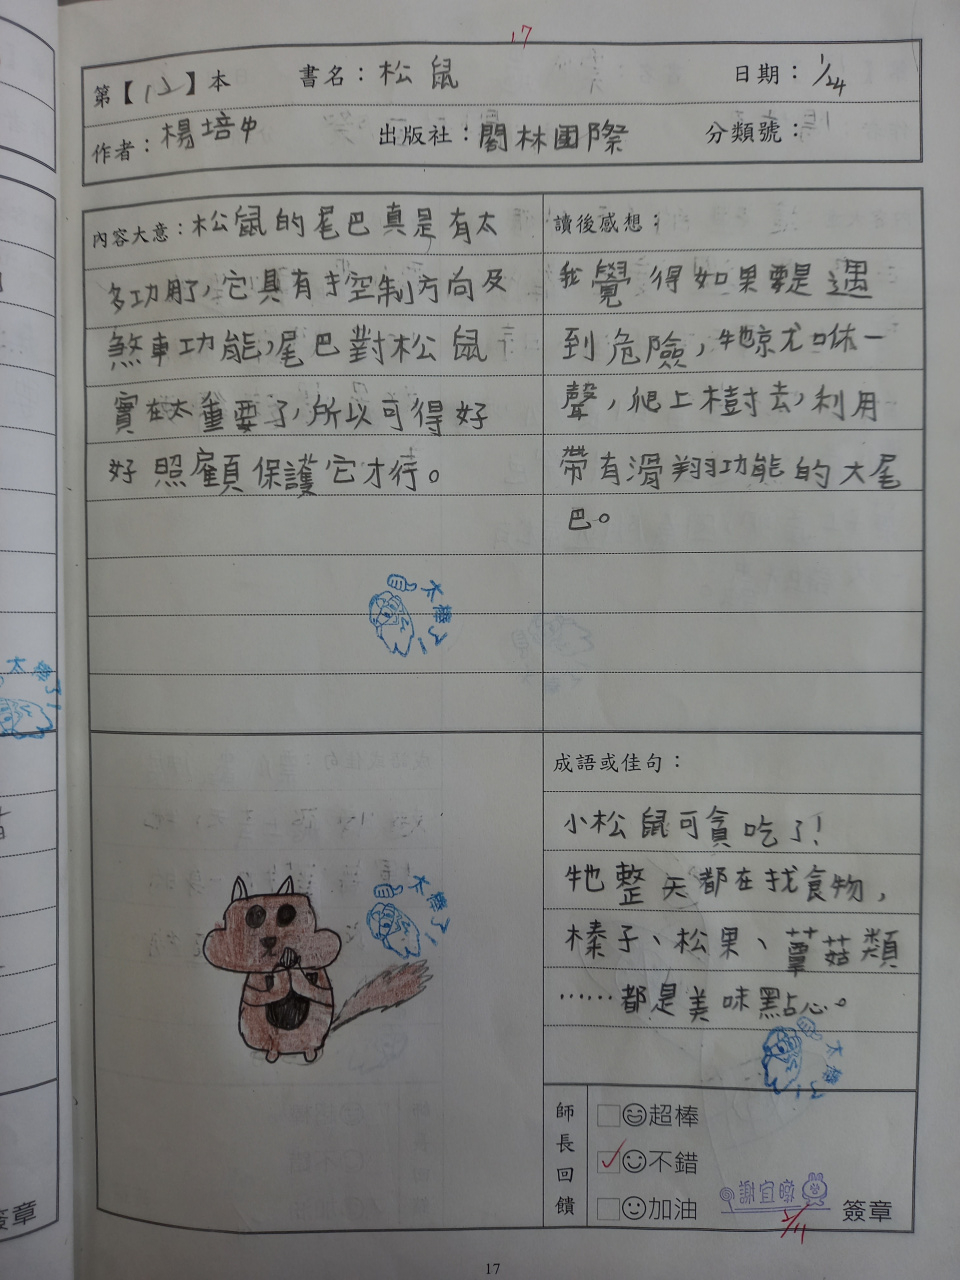 17
第【12】本 書名：松鼠 日期：1/24
作者：楊培中 出版社：閣林國際 分類號：
內容大意：松鼠的尾巴真是有太
多功用了，它具有控制方向及
煞車功能，尾巴對松鼠
實在太重要了，所以可得好
好照顧保護它才行。
讀後感想：
我覺得如果要是遇
到危險，牠就咻一
聲，爬上樹去，利用
帶有滑翔功能的大尾
巴。
太棒了！
成語或佳句：
小松鼠可貪吃了！
牠整天都在找食物，
榛子、松果、蕈菇類
……都是美味點心。
太棒了！
太棒了！
太棒了！
師長回饋
超棒
不錯
加油
簽章
2/11
簽章
17